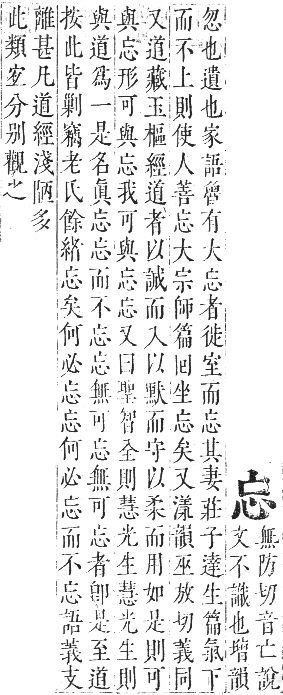 忘
無防切音亡說
文不識也增韻
忽也遺也家語魯有大忘者徙室而忘其妻莊子達生篇氣下
而不上則使人善忘大宗師篇回坐忘矣又漾韻巫放切義同
又道藏玉樞經道者以誠而入以默而守以柔而用如是則可
與忘形可與忘我可與忘忘又曰聖智全則慧光生慧光生則
與道爲一是名眞忘忘而不忘忘無可忘無可忘者卽是至道
按此皆剿竊老氏餘緒忘矣何必忘忘何必忘而不忘語義支
離甚凡道經淺陋多
此類宜分别觀之